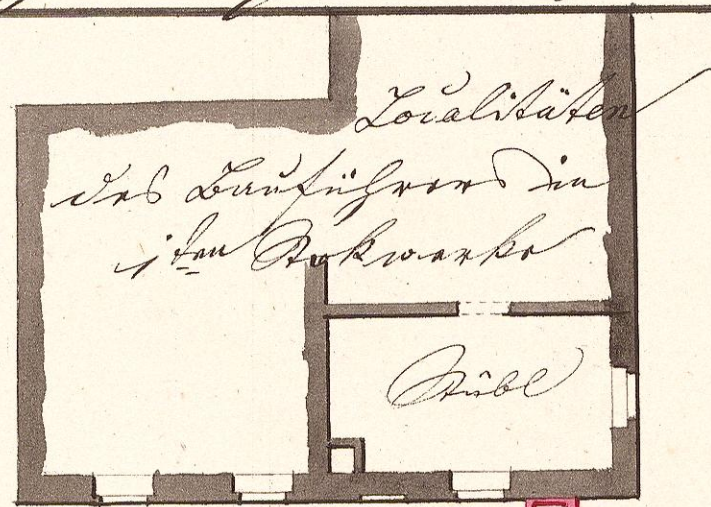 Localitäten
des Bauführers im
1ten Stokwerke
Stübl